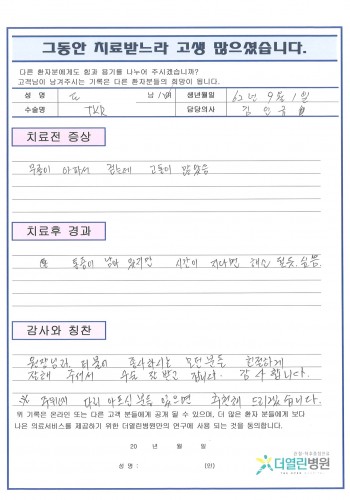 그동안 치료받느라 고생 많으셨습니다.
다른 환자분에게도 힘과 용기를 나누어 주시겠습니까?
고객님이 남겨주시는 기록은 다른 환자분들의 희망이 됩니다.
성 명 남 / 여 생년월일 62년 9월 1일
수술명 TKR 담당의사 김
치료전 증상
무릎이 아파서 걷는데 고통이 많았음
치료후 경과
통증이 남아 있지만 시간이 지나면 해소 될듯 싶음.
감사와 칭찬
원장님과 더불어 종사하시는 모든분들 친절하게
잘해 주셔서 수술 잘 받고 갑니다. 감사합니다.
※ 주위에 다리 아프신 분 있으면 추천해 드리겠습니다.
위 기록은 온라인 또는 다른 고객 분들에게 공개 될 수 있으며, 더 많은 환자 분들에게 보다
나은 의료서비스를 제공하기 위한 더열린병원만의 연구에 사용 되는 것을 동의합니다.
20 년 월 일
성 명 : (인)
더열린병원
THE OPEN HOSPITAL